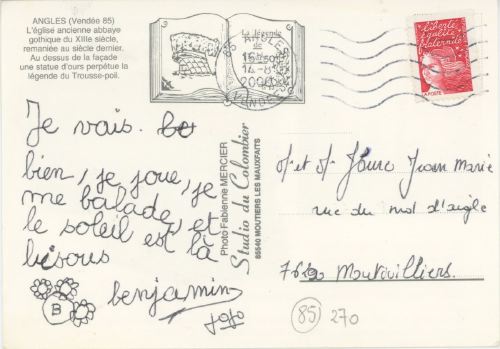 ANGLES (Vendée 85)
L'église ancienne abbaye
gothique du XIIIe siècle,
remaniée au siècle dernier.
Au dessus de la façade
une statue d'ours perpétue la
légende du Trousse-poil.
La légende
de
ANGLES
14-8
2000
VENDEE
Liberté
Égalité
Fraternité
LA POSTE
Je vais be
bien, je joue, je
me balade, et
le soleil est là
bisous
benjamin
jojo
B
Photo Fabienne MERCIER
Studio du Colombier
85540 MOUTIERS LES MAUXFAITS
Jean Marie
rue du d'aigle
Montivilliers.
85 270